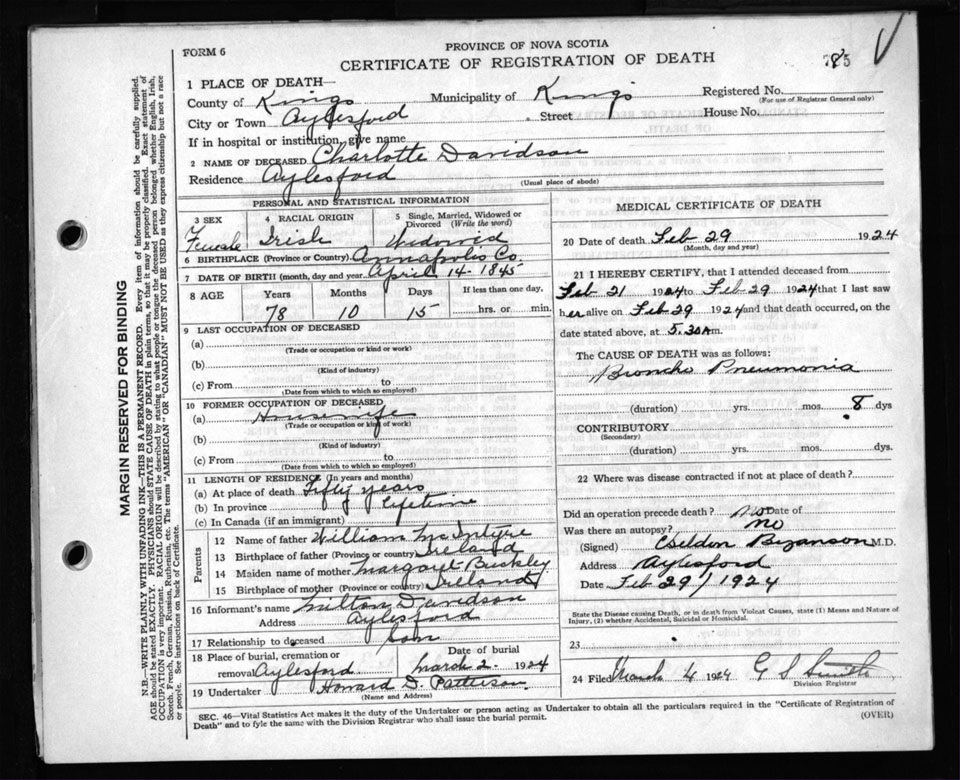 FORM 6
PROVINCE OF NOVA SCOTIA
CERTIFICATE OF REGISTRATION OF DEATH
785
1 PLACE OF DEATH—
County of Kings Municipality of Kings Registered No.
(For use of Registrar General only)
City or Town Aylesford Street House No.
If in hospital or institution, give name
2 NAME OF DECEASED Charlotte Davidson
Residence Aylesford
(Usual place of abode)
PERSONAL AND STATISTICAL INFORMATION
3 SEX 4 RACIAL ORIGIN 5 Single, Married, Widowed or Divorced (Write the word)
Female Irish Widowid
6 BIRTHPLACE (Province or Country) Annapolis Co.
7 DATE OF BIRTH (month, day and year) April 14 - 1845
8 AGE Years Months Days If less than one day,
78 10 15 hrs. or min.
9 LAST OCCUPATION OF DECEASED
(a)
(Trade or occupation or kind or work)
(b)
(Kind of industry)
(c) From to
(Date from which to which so employed)
10 FORMER OCCUPATION OF DECEASED
(a) Housewife
(Trade or occupation or kind of work)
(b)
(Kind of industry)
(c) From to
(Date from which to which so employed)
11 LENGTH OF RESIDENCE (In years and months)
(a) At place of death Fifty years
(b) In province lifetime
(c) In Canada (if an immigrant)
Parents
12 Name of father William McIntyre
13 Birthplace of father (Province or country) Ireland
14 Maiden name of mother Margaret Buckley
15 Birthplace of mother (Province or country) Ireland
16 Informant's name Milton Davidson
Address Aylesford
17 Relationship to deceased Son
18 Place of burial, cremation or removal Aylesford Date of burial March 2 1924
19 Undertaker Howard D. Patterson
(Name and Address)
MEDICAL CERTIFICATE OF DEATH
20 Date of death Feb 29 1924
(Month, day and year)
21 I HEREBY CERTIFY, that I attended deceased from
Feb 21 1924 to Feb 29 1924 that I last saw
her alive on Feb 29 1924 and that death occurred, on the date
stated above, at 5.30 am.
The CAUSE OF DEATH was as follows:
Broncho Pneumonia
(duration) yrs. mos. 8 dys
CONTRIBUTORY
(Secondary)
(duration) yrs. mos. dys.
22 Where was disease contracted if not at place of death?
Did an operation precede death? No Date of
Was there an autopsy? No
(Signed) Bezanson M.D.
Address Aylesford
Date Feb 29/1924
State the Disease causing Death, or in death from Violnat Causes, state (1) Means and Nature of
Injury, (2) whether Accidental, Suicidal or Homicidal.
23
24 Filed March 4 1924 G S Smith
Division Registrar
SEC. 46—Vital Statistics Act makes it the duty of the Undertaker or person acting as Undertaker to obtain all the particulars required in the "Certificate of Registration of
Death" and to fyle the same with the Division Registrar who shall issue the burial permit.
(OVER)
MARGIN RESERVED FOR BINDING
N.B.—WRITE PLAINLY WITH UNFADING INK—THIS IS A PERMANENT RECORD. Every item of information should be carefully supplied.
AGE should be stated EXACTLY. PHYSICIANS should STATE CAUSE OF DEATH in plain terms, so that it may be properly classified. Exact statement of
OCCUPATION is very important. RACIAL ORIGIN will be described by stating to what people or tongue the deceased person belonged whether English, Irish,
Scotch, French, German, Russian, Ruthenian, etc. The terms "AMERICAN" OR "CANADIAN" MUST NOT BE USED as they express citizenship but not a race
or people. See instructions on back of Certificate.